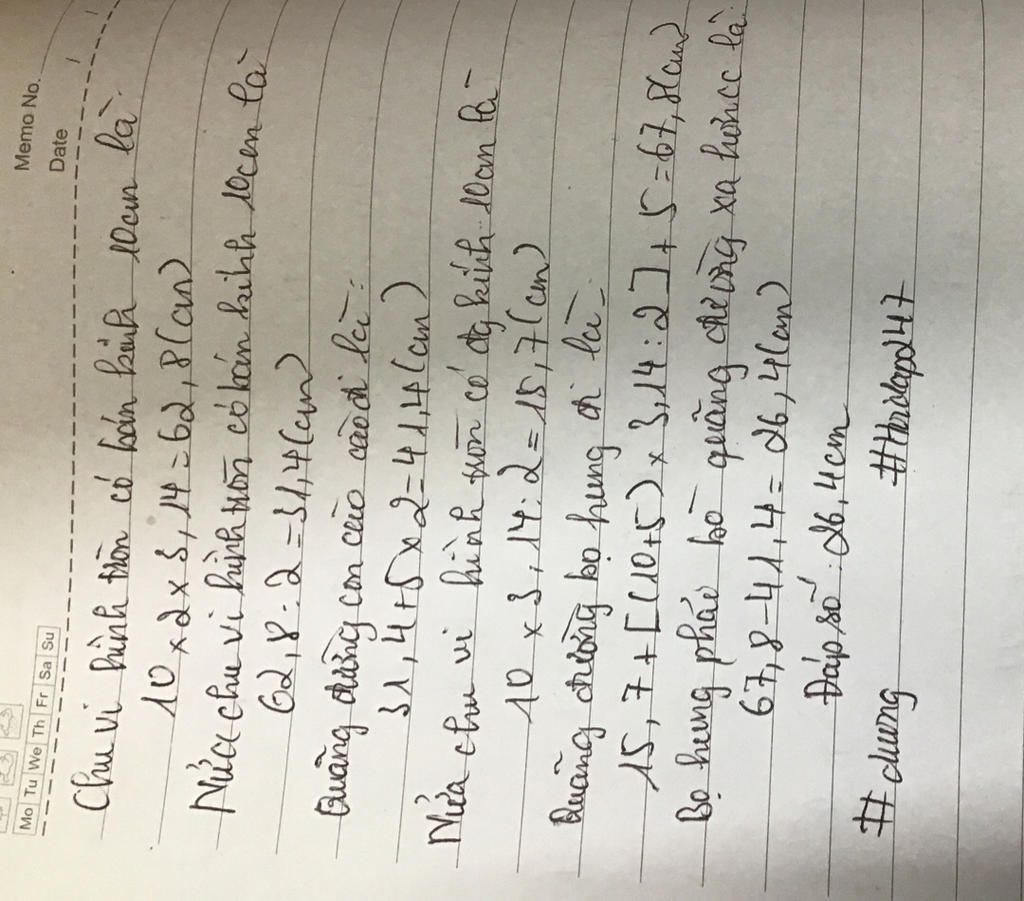 Memo No.
Mo Tu We Th Fr Sa Su
Date / /
Chu vi hình tròn có bán kính 10cm là:
10 x 2 x 3,14 = 62,8(cm)
Nửa chu vi hình tròn có bán kính 10cm là
62,8 : 2 = 31,4(cm)
Quãng đường con cào cào đi là:
31,4 + 5 x 2 = 41,4(cm)
Nửa chu vi hình tròn có đg kính 10cm là
10 x 3,14 : 2 = 15,7(cm)
Quãng đường bọ hung đi là:
15,7 + [(10+5) x 3,14 : 2] + 5 = 67,8(cm)
Bọ hung phải bò quãng đường xa hơn cc là:
67,8 - 41,4 = 26,4(cm)
Đáp số: 26,4cm
#duong #Hoidap247